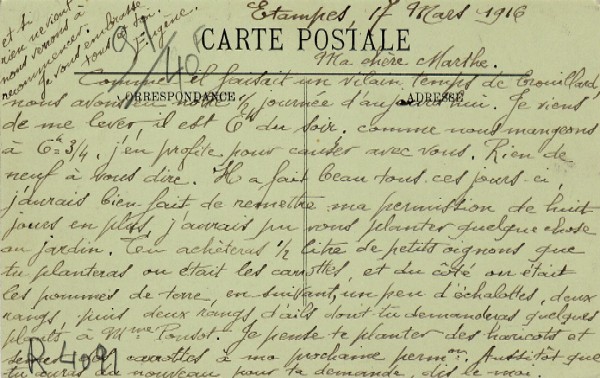 Etampes, 17 Mars 1916
CARTE POSTALE
Ma chère Marthe.
Comme il faisait un vilain temps de brouillard,
CORRESPONDANCE.
ADRESSE
nous avons notre 1/2 journée d'aujourd'hui. Je viens
de me lever, il est 6h du soir. comme nous mangeons
à 6h 3/4. j'en profite pour causer avec vous. Rien de
neuf à vous dire. Il a fait beau tous ces jours-ci,
j'aurais bien fait de remettre ma permission de huit
jours en plus, j'aurais pu vous planter quelque chose
au jardin. Tu achèteras 1/2 litre de petits oignons que
tu planteras ou était les carottes, et du côté ou était
les pommes de terre, en suivant, un peu d'échalottes, deux
rangs, puis deux rangs d'ails dont tu demanderas quelques
plants à Mme Pousot. Je pense te planter des haricots et
carottes à ma prochaine permon. Aussitôt que
tu auras du nouveau pour ta demande, dis le moi.
et si
rien ne vient
nous venons à
recommencer.
Je vous embrasse
tous
Eugène.
91
40
R-4091